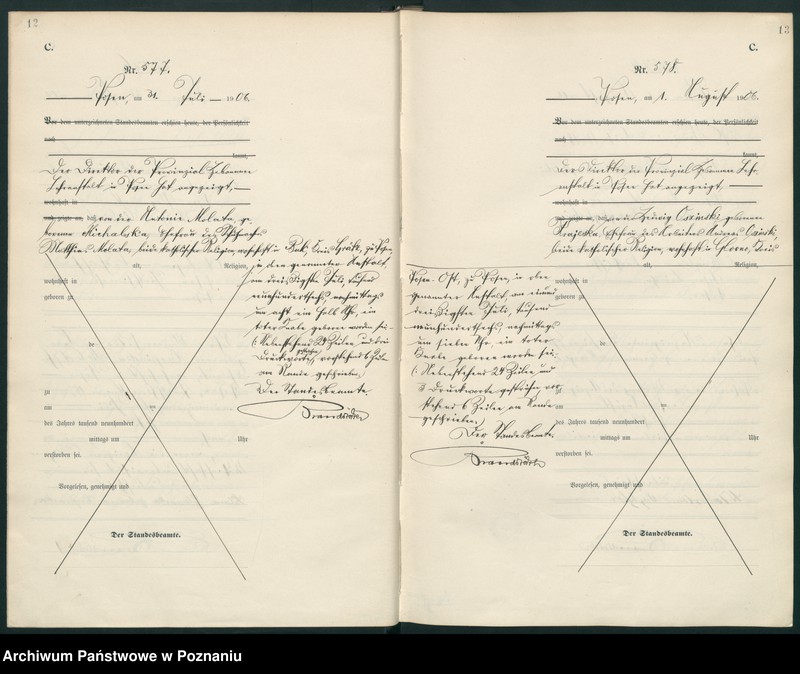 12
C.
Nr. 577.
Posen, am 31. Juli 1906.
Vor dem unterzeichneten Standesbeamten erschien heute, der Persönlichkeit
nach
kannt,
Der Direktor der Provinzial Hebammen
Lehranstalt in Posen hat angezeigt,
wohnhaft in
und zeigte an, daß von der Antonie Molata, ge-
borenen Michalska, Ehefrau des
Matthias Molata, beide katholischer Religion, wohnhaft in Buk, Kreis Grätz, zu Posen
in der genannten Anstalt,
am dreißigsten Juli, tausend
neunhundertsechs, nachmittags
um acht ein halb Uhr, ein
toter Knabe geboren worden sei.
Nebenstehend 24 Zeilen und drei
Druckworte gestrichen, vorstehend 6 Zeilen
am Rande geschrieben.
Der Standesbeamte.
alt, Religion,
wohnhaft in
geboren zu
de
zu
am
des Jahres tausend neunhundert
mittags um Uhr
verstorben sei.
Vorgelesen, genehmigt und
Der Standesbeamte.
13
C.
Nr. 578.
Posen, am 1. August 1906.
Vor dem unterzeichneten Standesbeamten erschien heute, der Persönlichkeit
nach
kannt,
Der Direktor der Provinzial Hebammen Lehr-
anstalt in Posen hat angezeigt,
wohnhaft in
und zeigte an, daß von der Hedwig Osinski, geborenen
Ehefrau des Arbeiters Andreas Osinski,
beide katholischer Religion, wohnhaft in Kreis
Posen-Ost, zu Posen, in der
genannten Anstalt, am einund
dreißigsten Juli, tausend
neunhundertsechs, nachmittags
um sieben Uhr ein toter
Knabe geboren worden sei.
Nebenstehend 24 Zeilen und
3 Druckworte gestrichen, vor-
stehend 6 Zeilen am Rande
geschrieben.
Der Standesbeamte.
alt, Religion,
wohnhaft in
geboren zu
zu
am
des Jahres tausend neunhundert
mittags um Uhr
verstorben sei.
Vorgelesen, genehmigt und
Der Standesbeamte.
Archiwum Państwowe w Poznaniu